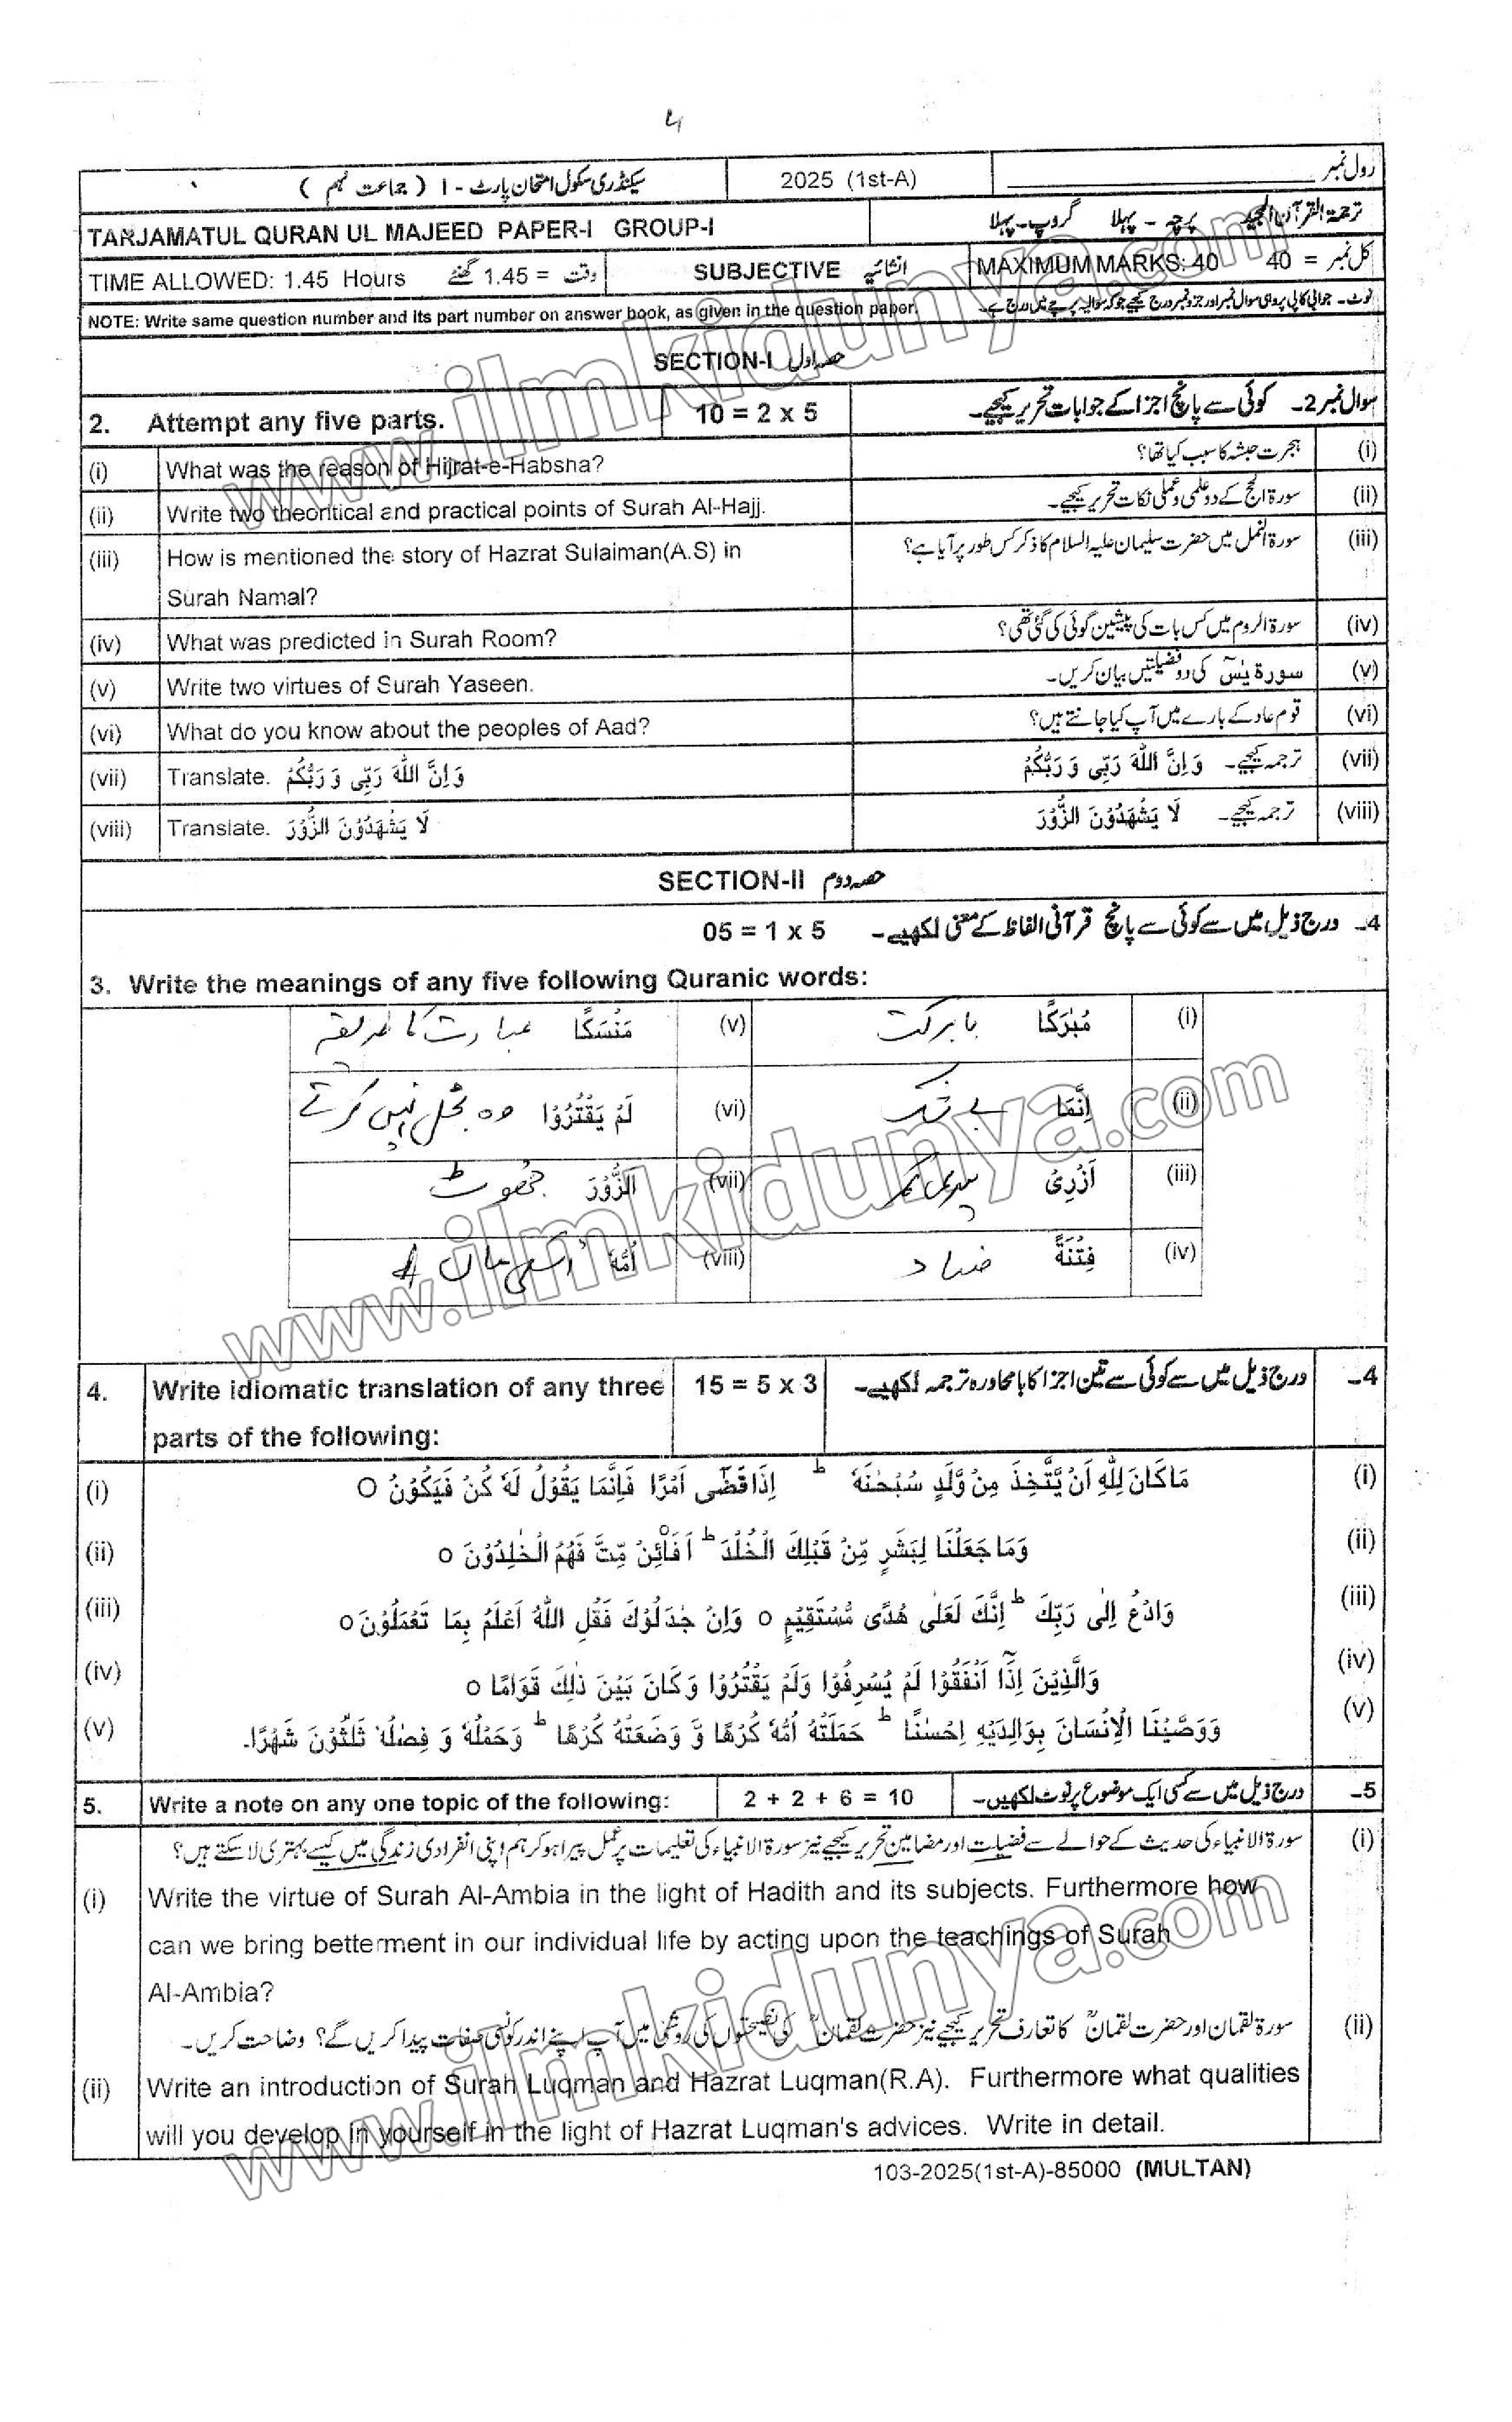 4
سیکنڈری سکول امتحان پارٹ - I ( جماعت نہم ) 2025 (1st-A) رول نمبر
TARJAMATUL QURAN UL MAJEED PAPER-I GROUP-I ترجمۃ القرآن المجید پرچہ - پہلا گروپ۔پہلا
TIME ALLOWED: 1.45 Hours وقت = 1.45 گھنٹے SUBJECTIVE انشائیہ MAXIMUM MARKS: 40 کل نمبر = 40
NOTE: Write same question number and its part number on answer book, as given in the question paper. نوٹ۔ جوابی کاپی پر وہی سوال نمبر اور جزو نمبر درج کیجیے جو کہ سوالیہ پرچے میں درج ہے۔
SECTION-I حصہ اول
2. Attempt any five parts. 10 = 2 x 5 سوال نمبر 2۔ کوئی سے پانچ اجزا کے جوابات تحریر کیجیے۔
(i) What was the reason of Hijrat-e-Habsha? ہجرت حبشہ کا سبب کیا تھا؟ (i)
(ii) Write two theoritical and practical points of Surah Al-Hajj. سورۃ الحج کے دو علمی و عملی نکات تحریر کیجیے۔ (ii)
(iii) How is mentioned the story of Hazrat Sulaiman(A.S) in سورۃ النمل میں حضرت سلیمان علیہ السلام کا ذکر کس طور پر آیا ہے؟ (iii)
Surah Namal?
(iv) What was predicted in Surah Room? سورۃ الروم میں کس بات کی پیشین گوئی کی گئی تھی؟ (iv)
(v) Write two virtues of Surah Yaseen. سورۃ یٰسٓ کی دو فضیلتیں بیان کریں۔ (v)
(vi) What do you know about the peoples of Aad? قوم عاد کے بارے میں آپ کیا جانتے ہیں؟ (vi)
(vii) Translate. وَ اِنَّ اللّٰهَ رَبِّی وَ رَبُّکُمْ ترجمہ کیجیے۔ وَ اِنَّ اللّٰهَ رَبِّی وَ رَبُّکُمْ (vii)
(viii) Translate. لَا یَشْهَدُوْنَ الزُّوْرَ ترجمہ کیجیے۔ لَا یَشْهَدُوْنَ الزُّوْرَ (viii)
SECTION-II حصہ دوم
4۔ درج ذیل میں سے کوئی سے پانچ قرآنی الفاظ کے معنی لکھیے۔ 05 = 1 x 5
3. Write the meanings of any five following Quranic words:
(i) مُبٰرَکًا بابرکت (v) مَنْسَکًا عبادت کا طریقہ
(ii) اِنَّمَا بے شک (vi) لَمْ یَقْتُرُوْا وہ بخل نہیں کرتے
(iii) اَزْرِیْ (vii) الزُّوْرَ جھوٹ
(iv) فِتْنَةً فساد (viii) اُمُّهٗ اسکی ماں
4. Write idiomatic translation of any three 15 = 5 x 3 درج ذیل میں سے کوئی سے تین اجزا کا بامحاورہ ترجمہ لکھیے۔ 4۔
parts of the following:
(i) مَا کَانَ لِلّٰهِ اَنْ یَّتَّخِذَ مِنْ وَّلَدٍ سُبْحٰنَهٗ ؕ اِذَا قَضٰۤی اَمْرًا فَاِنَّمَا یَقُوْلُ لَهٗ کُنْ فَیَکُوْنُ ○ (i)
(ii) وَمَا جَعَلْنَا لِبَشَرٍ مِّنْ قَبْلِكَ الْخُلْدَ ؕ اَفَا۟ئِنْ مِّتَّ فَهُمُ الْخٰلِدُوْنَ ○ (ii)
(iii) وَادْعُ اِلٰی رَبِّكَ ؕ اِنَّكَ لَعَلٰی هُدًی مُّسْتَقِیْمٍ ○ وَاِنْ جٰدَلُوْكَ فَقُلِ اللّٰهُ اَعْلَمُ بِمَا تَعْمَلُوْنَ ○ (iii)
(iv) وَالَّذِیْنَ اِذَاۤ اَنْفَقُوْا لَمْ یُسْرِفُوْا وَلَمْ یَقْتُرُوْا وَکَانَ بَیْنَ ذٰلِكَ قَوَامًا ○ (iv)
(v) وَوَصَّیْنَا الْاِنْسَانَ بِوَالِدَیْهِ اِحْسٰنًا ؕ حَمَلَتْهُ اُمُّهٗ کُرْهًا وَّ وَضَعَتْهُ کُرْهًا ؕ وَحَمْلُهٗ وَ فِصٰلُهٗ ثَلٰثُوْنَ شَهْرًا۔ (v)
5. Write a note on any one topic of the following: 2 + 2 + 6 = 10 درج ذیل میں سے کسی ایک موضوع پر نوٹ لکھیں۔ 5۔
(i) سورۃ الانبیاء کی حدیث کے حوالے سے فضیلت اور مضامین تحریر کیجیے نیز سورۃ الانبیاء کی تعلیمات پر عمل پیرا ہو کر ہم اپنی انفرادی زندگی میں کیسے بہتری لا سکتے ہیں؟
(i) Write the virtue of Surah Al-Ambia in the light of Hadith and its subjects. Furthermore how
can we bring betterment in our individual life by acting upon the teachings of Surah
Al-Ambia?
(ii) سورۃ لقمان اور حضرت لقمانؒ کا تعارف تحریر کیجیے نیز حضرت لقمانؒ کی نصیحتوں کی روشنی میں آپ اپنے اندر کونسی صفات پیدا کریں گے؟ وضاحت کریں۔
(ii) Write an introduction of Surah Luqman and Hazrat Luqman(R.A). Furthermore what qualities
will you develop in yourself in the light of Hazrat Luqman's advices. Write in detail.
103-2025(1st-A)-85000 (MULTAN)
www.ilmkidunya.com
www.ilmkidunya.com
www.ilmkidunya.com